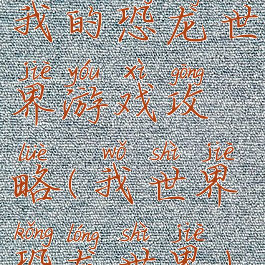 我的恐龙世
jiè yóu xì gōng
界游戏攻
lüè ( wǒ shì jiè
略(我世界
kǒng lóng shì jiè
恐龙世界)